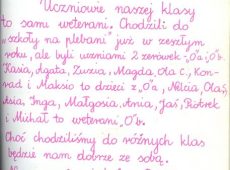 Uczniowie naszej klasy
to sami weterani. Chodzili do
„szkoły na plebani" już w zeszłym
roku, ale byli uczniami 2 zerówek „O"a i „O"b.
Kasia, Agata, Zuzia, Magda, Ola C., Kon-
rad i Maksio to dzieci z „O"a, Nelcia, Ola Ś,
Asia, Inga, Małgosia, Ania, Jaś, Piotrek
i Michał to weterani „O"b.
Choć chodziliśmy do różnych klas
będzie nam dobrze ze sobą.